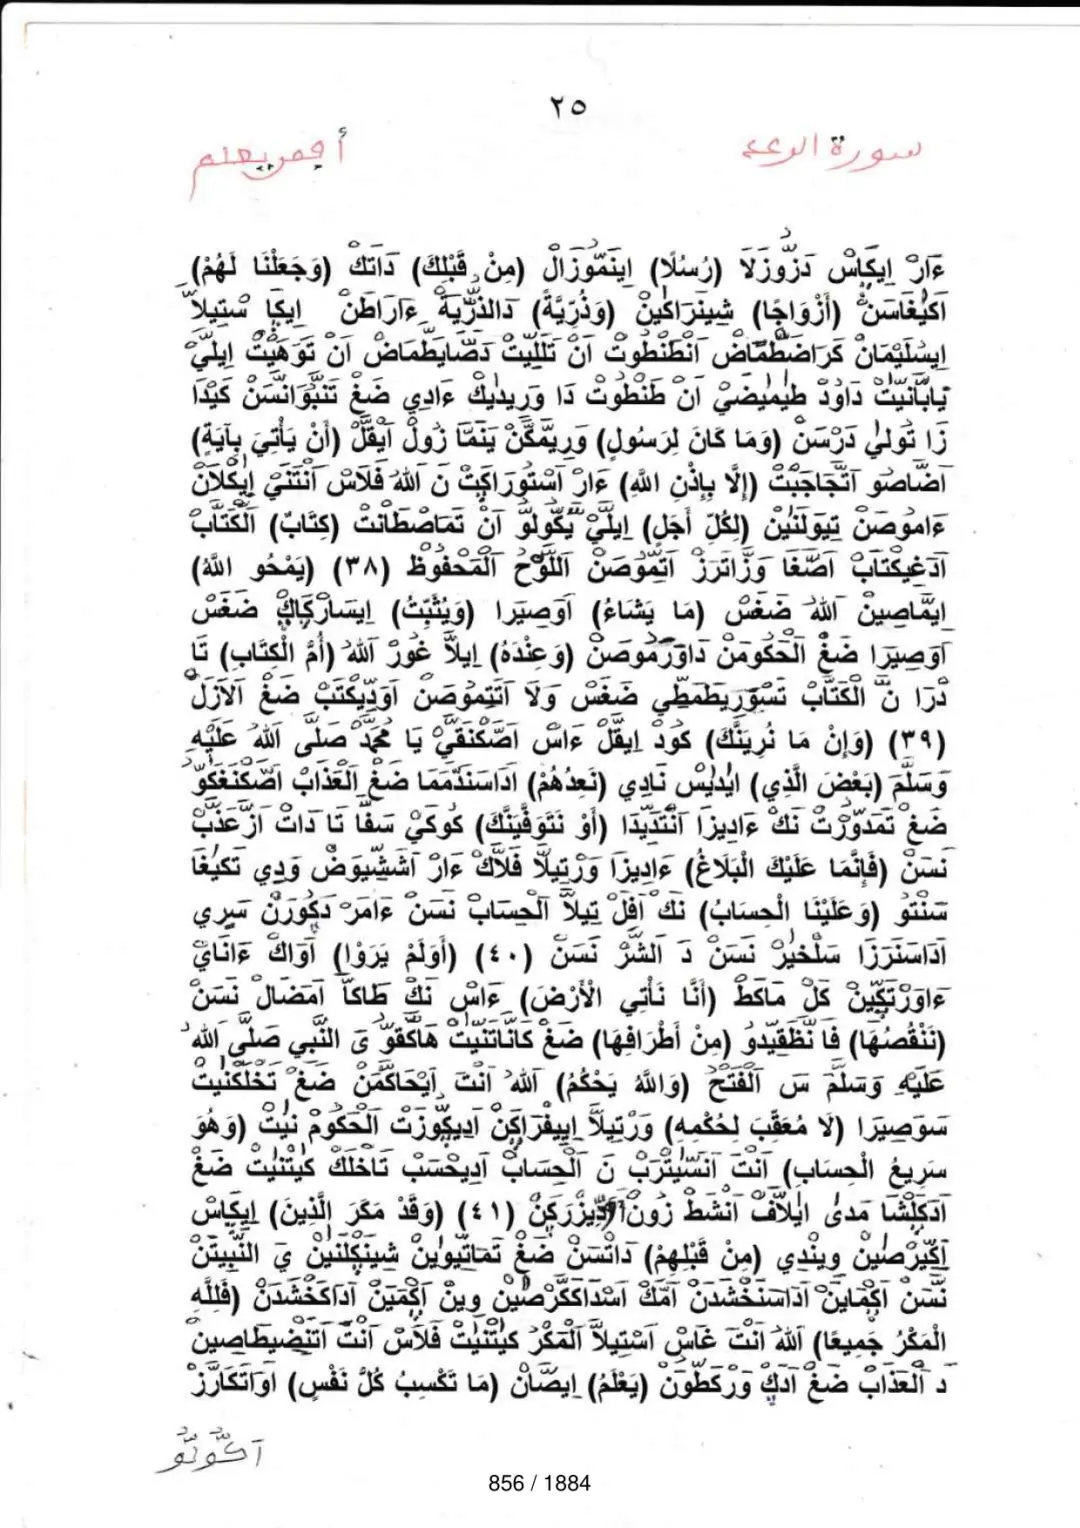 ٢٥
سورة الرعد
أفمن يعلم
ءَارْ اِيكَاسْ دَزُّوزَلَا (رُسُلًا) اِينَمُّوزَالْ (مِنْ قَبْلِكَ) دَاتَكْ (وَجَعَلْنَا لَهُمْ)
(أَزْوَاجًا) شِينَرَاكِينْ (وَذُرِّيَّةً) دَالذُّرِّيَةْ ءَارَاطَنْ اِيكَا سْتِيلاَّ
زَا تُولىٰ دَرْسَنْ (وَمَا كَانَ لِرَسُولٍ) وَرِيمَّكَّنْ يَنَمَّا زُولْ اَيقَلْ (أَنْ يَأْتِيَ بِآيَةٍ)
(إِلَّا بِإِذْنِ اللَّهِ) ءَارْ اَسْتُورَاكِيتْ نَ اَللهُ فَلَاسْ اَنْتَنَيْ اِيكَلَانْ
ءَامُوصَنْ تِيوَلَنْيِنْ (لِكُلِّ أَجَلٍ) اِيلَيْ يَكُّولُو اَنْ تَمَاصْطَانْتْ (كِتَابٌ) اَلْكَتَّابْ
اَدَغِيكْتَابْ اَصَّغَا وَزَّاتَرَزْ اَتَّمُوصَنْ اَللَّوْحُ اَلْمَحْفُوظْ (٣٨) (يَمْحُو اللَّهُ)
اِيمَّاصِينْ اَللهُ ضَغَسْ (مَا يَشَاءُ) اَوَصِيرَا (وَيُثْبِتُ) اِيسَارْكَاكْ ضَغَسْ
اَوَصِيرَا ضَغْ اَلْحَكُومَنْ دَاوَرْمُوصَنْ (وَعِنْدَهُ) اِيلاَّ غُورْ اَللهُ (أُمُّ الْكِتَابِ) تَا
دَرَا نَّ اَلْكَتَّابْ تَسْوَرِيطَمَطِي ضَغَسْ وَلَا اَتَّتِمُوصَنْ اَوَدِيكْتَبْ ضَغْ اَلَازَلْ
(٣٩) (وَإِنْ مَا نُرِيَنَّكَ) كُودْ اِيقَلْ ءَاسْ اَصَّكَنَقَيْ يَا مُحَمَّدْ صَلَّى اَللهُ عَلَيْهِ
وَسَلَّمَ (بَعْضَ الَّذِي) اِيَديْسْ نَادِي (نَعِدُهُمْ) اَدَاسَنَدَّمَمَا ضَغْ اَلْعَذَابْ اَصَّكَنَغَكَوُّ
ضَغْ تَمَدُّورْتْ نَكْ ءَادِيزَا اَنْتَدِيدَا (أَوْ نَتَوَفَّيَنَّكَ) كُوكَيْ سَقَّا تَا دَاتْ اَزَّعَذَّبْ
نَسَنْ (فَإِنَّمَا عَلَيْكَ الْبَلَاغُ) ءَادِيزَا وَرْتِيلَّا فَلَاكْ ءَارْ اَشَشِّيوَضْ وَدِي تَكِيغَا
سَنْتُو (وَعَلَيْنَا الْحِسَابُ) نَكْ اَفَلْ تِيلاَّ اَلْحِسَابْ نَسَنْ ءَامَرْ دَكُورَنْ سَرِي
اَدَاسَنَرَزَا سَلْخَيْرْ نَسَنْ دَ اَلشَّرْ نَسَنْ (٤٠) (أَوَلَمْ يَرَوْا) اَوَاكْ ءَانَايْ
ءَاوَرْتَكِّينْ كَلْ مَاكَطْ (أَنَّا نَأْتِي الْأَرْضَ) ءَاسْ نَكْ طَاكَاَّ اَمَضَالْ نَسَنْ
(نَنْقُصُهَا) فَا نَظَّقِيدُو (مِنْ أَطْرَافِهَا) ضَغْ كَانَّاتَنْيِتْ هَاكَقُوُّ ىَ النَّبِي صَلَّى اَللهُ
عَلَيْهِ وَسَلَّمَ سَ اَلْفَتْحْ (وَاللَّهُ يَحْكُمُ) اَللهُ اَنْتَ اَيْحَاكَمَنْ ضَغْ تَخْلَكْنَيْتْ
سَوَصِيرَا (لَا مُعَقِّبَ لِحُكْمِهِ) وَرْتِيلاَّ اِيِيفْرَاكَنْ اَدِيكُّوزَتْ اَلْحَكُومْ نَيْتْ (وَهُوَ
سَرِيعُ الْحِسَابِ) اَنْتَ اَنَسِّيتْرَبْ نَ اَلْحِسَابْ اَدِيحْسَبْ تَاخْلَكْ كَيْتَنْيِتْ ضَغْ
(٤١) (وَقَدْ مَكَرَ الَّذِينَ) اِيكَاسْ
اَكِّيرْصِينْ وِينْدِي (مِنْ قَبْلِهِمْ) دَاتْسَنْ ضَغْ تَمَاتِّيوِينْ شِينَكْلَنْيِنْ يَ النَّبِيتَنْ
نَّسَنْ اَكْمَايَنْ اَدَاسَنَخْشَدَنْ اَمَكْ اَسْدَاكَكَّرْصَيْنْ وِينْ اَكْمَيَنْ اَدَاكَخْشَدَنْ (فَلِلَّهِ
الْمَكْرُ جَمِيعًا) اَللهُ اَنْتَ غَاسْ اَسْتِيلاَّ اَلْمَكَرْ كَيْتَنْيِتْ فَلَاسْ اَنْتَ اَتَنَّضِيطَاصِينْ
دَ اَلْعَذَابْ ضَغْ اَدَكْ وَرْكَطُّونْ (يَعْلَمُ) اِيصَّانْ (مَا تَكْسِبُ كُلُّ نَفْسٍ) اَوَاتَكَارَّزْ
856 / 1884